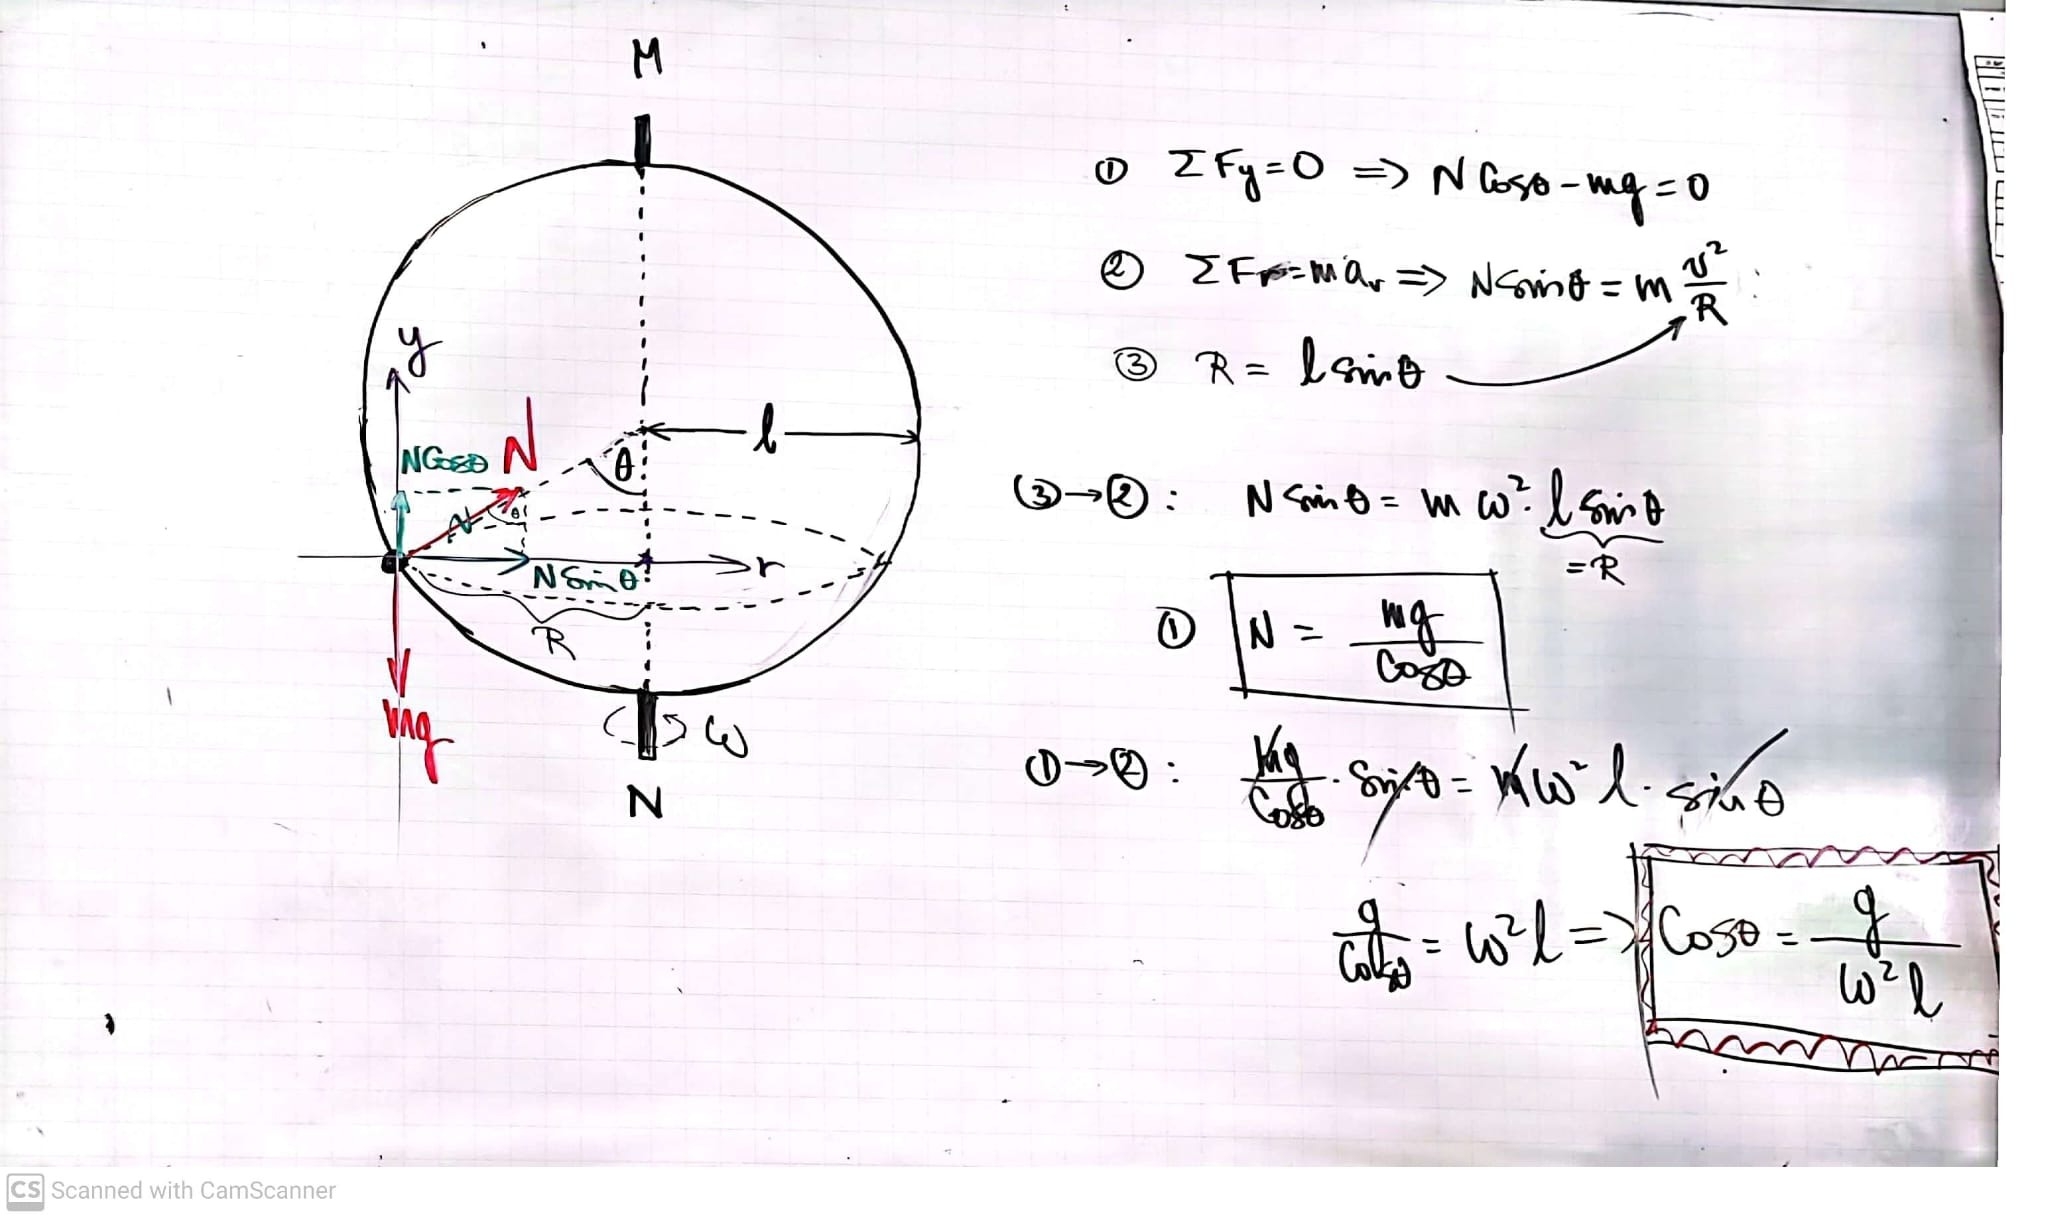 M
y
N
l
NCosθ
θ
N
θ
r
NSinθ
R
mg
ω
N
① ΣFy=0 => N Cosθ - mg = 0
② ΣFr=mar => NSinθ = m v²/R
③ R = l Sinθ
③→②: N Sinθ = m ω². l Sinθ
=R
① N = mg/Cosθ
①→②: mg/Cosθ . Sinθ = mω² l. sinθ
g/Cosθ = ω²l => Cosθ = g/ω²l
CS Scanned with CamScanner